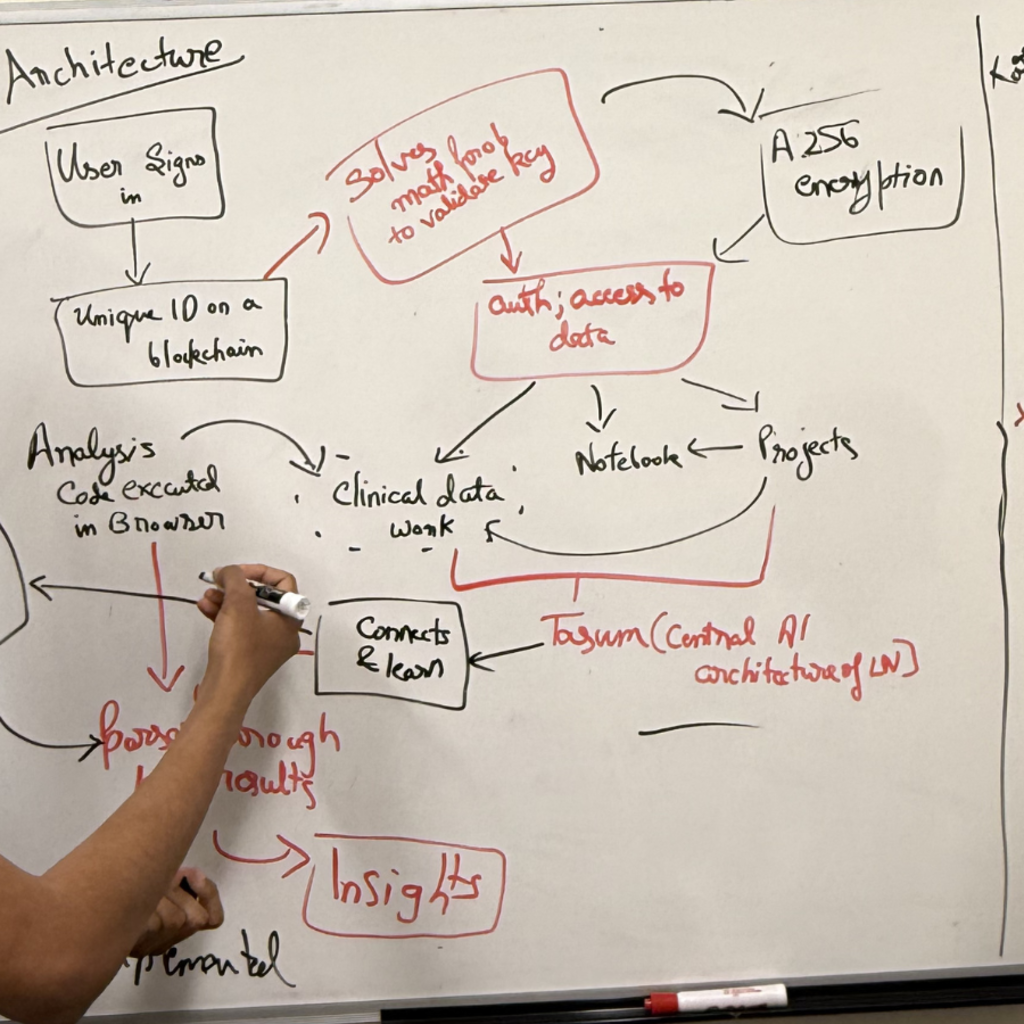 Architecture
User Signs
in
Solves
math prob
to validate key
A.256
encryption
Unique ID on a
blockchain
auth; access to
data
Analysis
Code executed
in Browser
Clinical data
work
Notebook
Projects
Connects
& learn
Tasum (Central AI
architecture of LN)
results
Insights